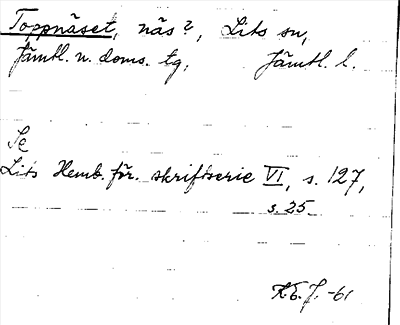 Toppnäset, näs?, Lits sn,
Jämtl. n. doms. tg, Jämtl. l.
Se
Lits Hemb. för. skriftserie VI, s. 127,
s. 25
K.E.J. -61